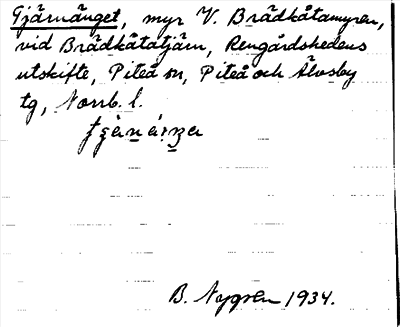 Tjärnänget, myr V. Brädkåtamyren,
vid Brädkåtatjärn, Rengårdshedens
utskifte, Piteå sn, Piteå och Älvsby
tg, Norrb. l.
B. Nygren 1934.